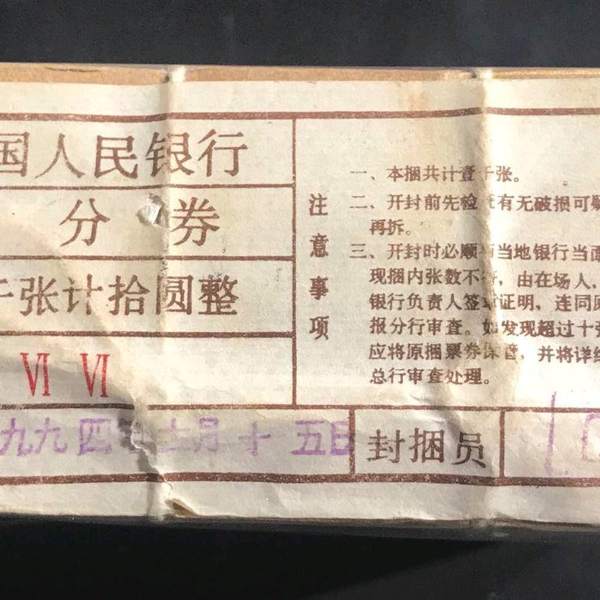 国人民银行
分 券
千张计拾圆整
Ⅵ Ⅵ
九九四年 月十五日
封捆员
注意事项
一、本捆共计壹千张。
二、开封前先检查有无破损可疑
再拆。
三、开封时必顺 当地银行当面
现捆内张数不符，由在场人、
银行负责人签章证明，连同原
报分行审查。如发现超过十张
应将原捆票券保管，并将详细
总行审查处理。